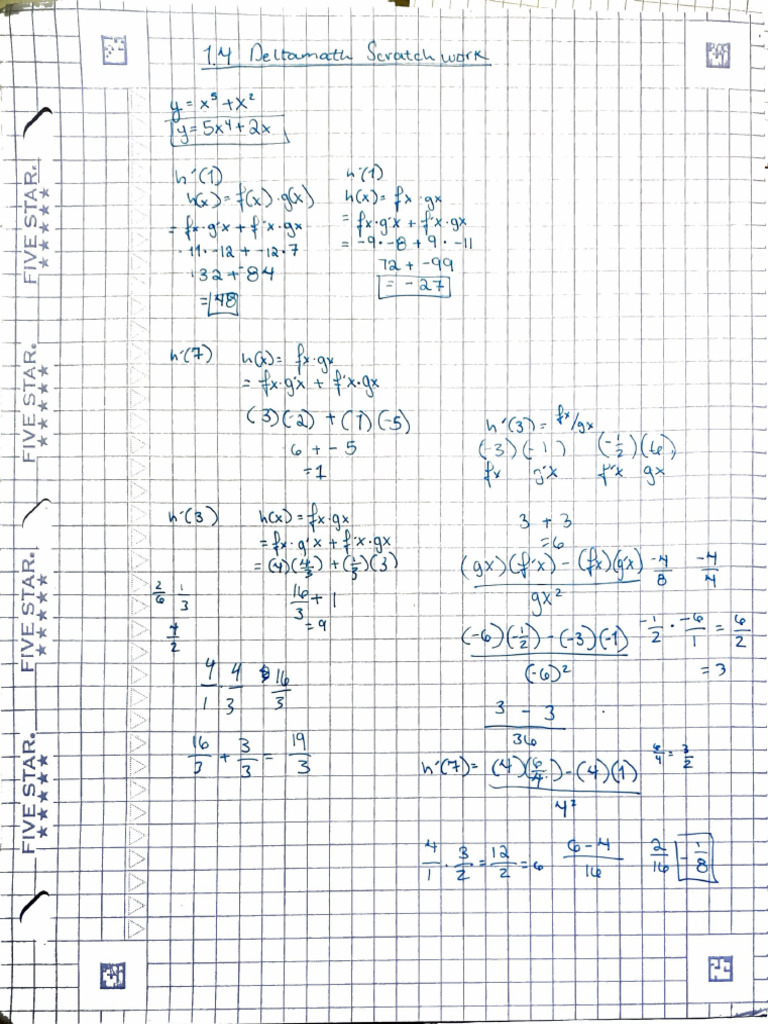 1.4 Deltamath Scratch work
y = x⁵ + x²
y = 5x⁴ + 2x
h'(1)
h(x) = f(x) · g(x)
= fx·g'x + f'x·gx
-11·-12 + -12·7
132 + -84
= 48
h'(1)
h(x) = fx·gx
= fx·g'x + f'x·gx
= -9·-8 + 9·-11
72 + -99
= -27
h'(7)
h(x) = fx·gx
= fx·g'x + f'x·gx
(-3)(-2) + (1)(-5)
6 + -5
= 1
h'(3)
h(x) = fx·gx
= fx·g'x + f'x·gx
= (4)(4/3) + (1/3)(3)
16/3 + 1
= 9
2/6 1/3
4/1 · 4/3 16/3
16/3 + 3/3 = 19/3
h'(3) = fx/gx
(-3)(-1) (-1/2)(-6)
fx g'x f'x gx
3 + 3
= 6
(gx)(f'x) - (fx)(g'x) / gx²
-4/8 -4/4
(-6)(-1/2) - (-3)(-1) / (-6)²
-1/2 · -6/1 = 6/2
= 3
3 - 3 / 36
h'(7) = (4)(6/4) - (4)(1) / 4²
6/4 = 3/2
4/1 · 3/2 = 12/2 = 6
6 - 4 / 16
2/16
1/8
FIVE STAR.
FIVE STAR.
FIVE STAR.
FIVE STAR.